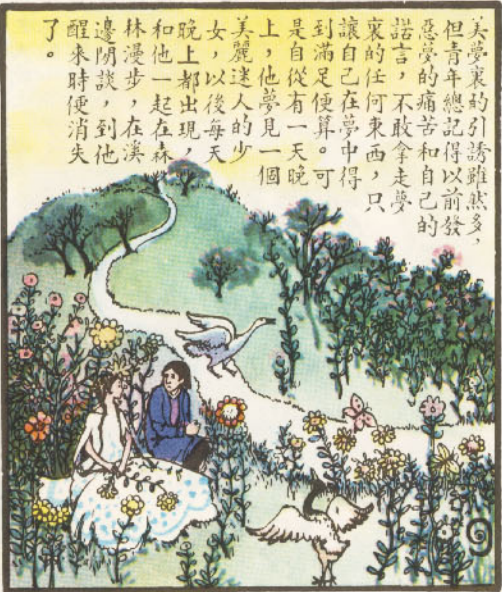 美夢裏的引誘雖然多，
但青年總記得以前發
惡夢的痛苦和自己的
諾言，不敢拿走夢
裏的任何東西，只
讓自己在夢中得
到滿足便算。可
是自從有一天晚
上，他夢見一個
美麗迷人的少
女，以後每天
晚上都出現，
和他一起在森
林漫步，在溪
邊閒談，到他
醒來時便消失
了。